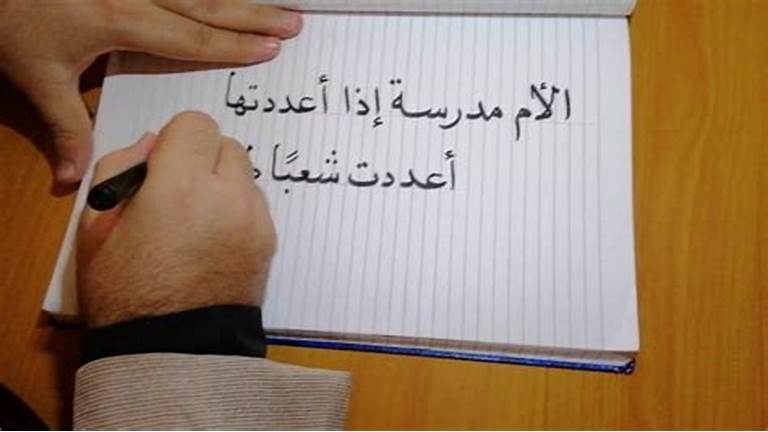 الأم مدرسة إذا أعددتها
أعددت شعبًا